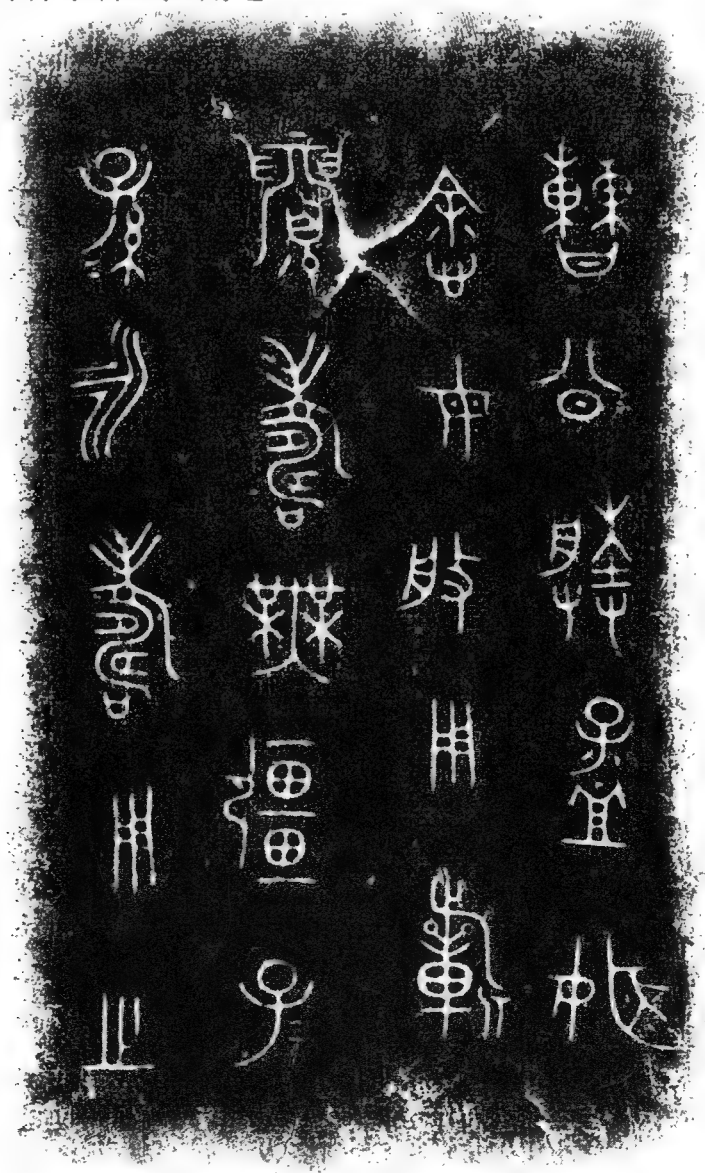 曹公媵孟姬
悆母盤用祈
眉壽無疆子
孫永壽用之